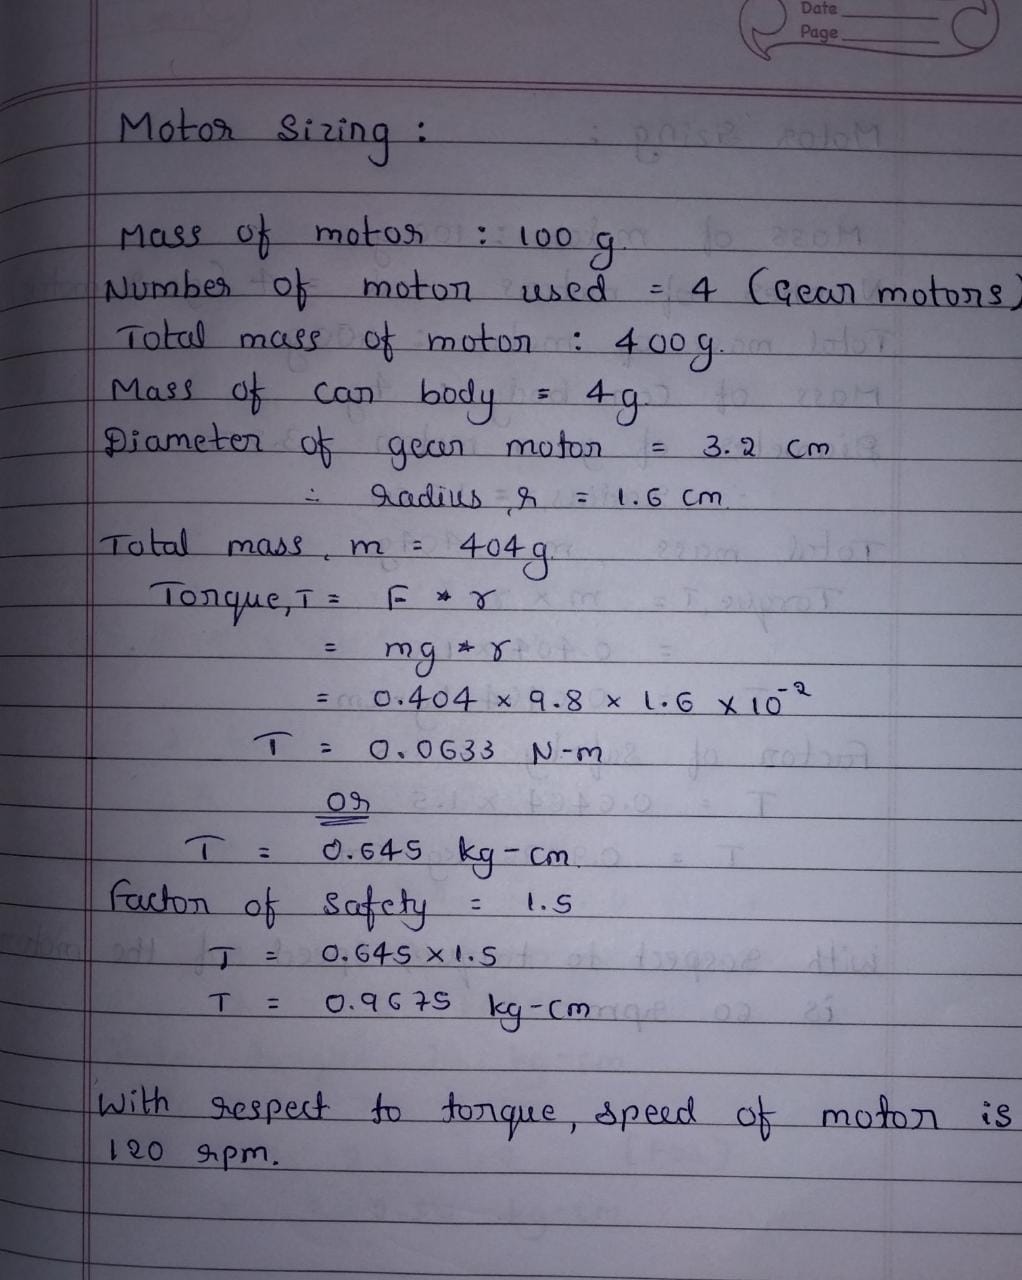 Date
Page
Motor Sizing :
Mass of motor : 100 g.
Number of motor used = 4 (Gear motors)
Total mass of motor : 400g.
Mass of car body = 4g.
Diameter of gear motor = 3.2 cm
∴ radius, r = 1.6 cm
Total mass, m = 404g.
Torque, T = F * r
= mg * r
= 0.404 x 9.8 x 1.6 x 10⁻²
T = 0.0633 N-m
or
T = 0.645 kg-cm.
Factor of safety = 1.5
T = 0.645 x 1.5
T = 0.9675 kg-cm
With respect to torque, speed of motor is
120 rpm.